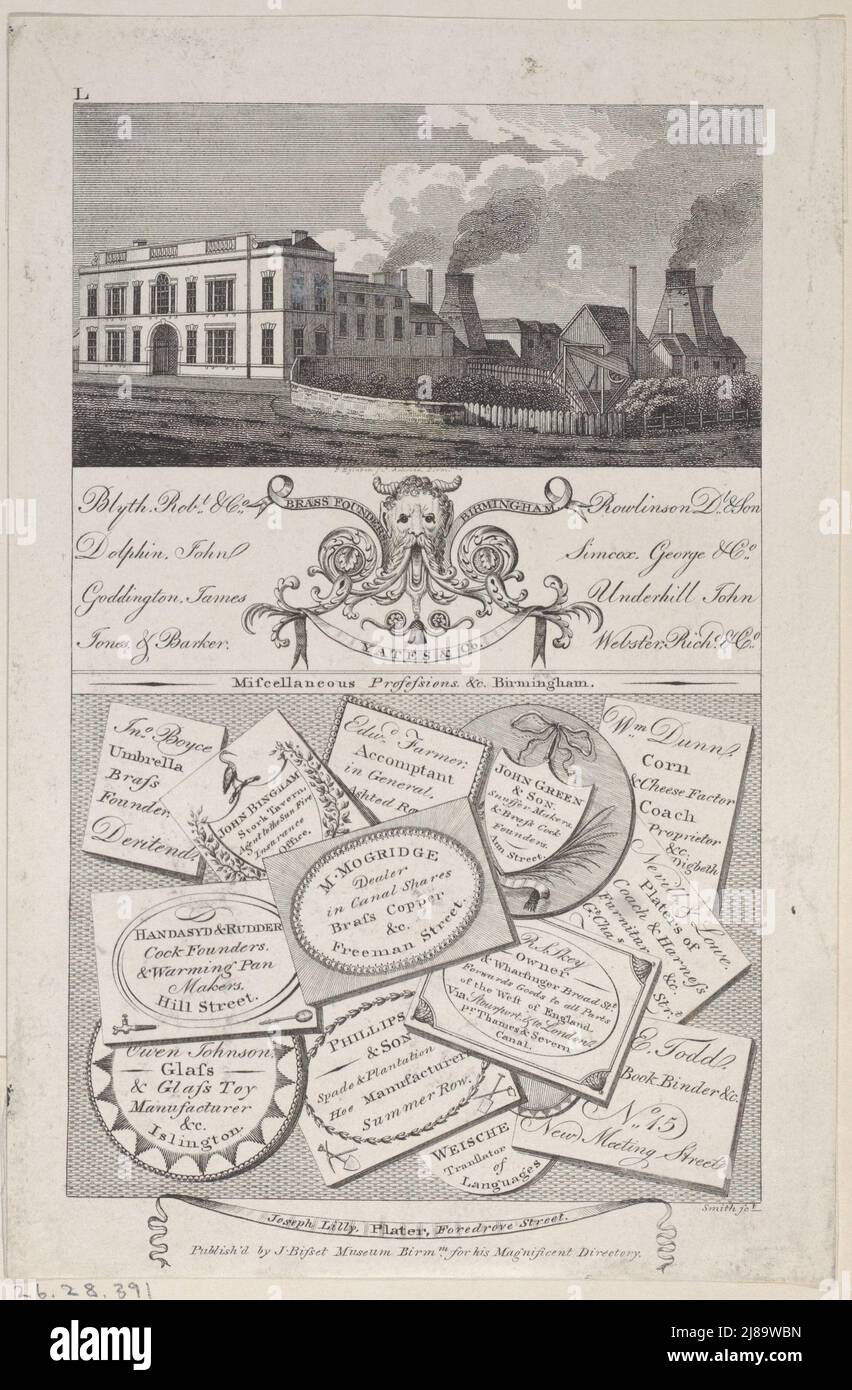 L
BRASS FOUNDERS BIRMINGHAM
Blyth, Robt. & Co.
Dolphin, John
Goddington, James
Jones & Barker.
Rowlinson Dl. & Son
Simcox, George & Co.
Underhill John
Webster, Richd. & Co.
YATES & Co.
Miſcellaneous Profeſsions. &c. Birmingham.
Jno. Boyce
Umbrella
Braſs
Founder,
Deritend
JOHN BINGHAM
Stork Tavern,
Agent to the Sun Fire
Insurance
Office.
Edwd. Farmer.
Accomptant
in General,
Ashted Ro
JOHN GREEN
& SON.
Snuffer Makers,
& Braſs Cock
Founders.
Ann Street.
Wm Dunn,
Corn
& Cheese Factor
Coach
Proprietor
&c.
Digbeth
M. MOGRIDGE
Dealer
in Canal Shares
Braſs Copper
&c.
Freeman Street.
Nevill Lowe.
Platers of
Coach & Harneſs
Furniture &c.
Gt. Chas. Strt.
HANDASYD & RUDDER
Cock Founders,
& Warming Pan
Makers.
Hill Street.
R. Skey
Owner
& Wharfinger Broad Stt.
Forwards Goods to all Parts
of the West of England.
Via. Stourport, & to London
pr. Thames & Severn
Canal.
Owen Johnson.
Glaſs
& Glaſs Toy
Manufacturer
&c.
Islington.
PHILLIPS
& SON
Spade & Plantation
Hoe Manufacturer
Summer Row.
E. Todd.
Book Binder &c.
No. 15
New Meeting Street
WEISCHE
Translator
of
Languages
Smith sct.
Joseph Lilly, Plater, Foredrove Street.
Publish'd by J. Biſset Museum Birmm. for his Magnificent Directory.
26.28.391
alamy
Image ID: 2J89WBN
www.alamy.com